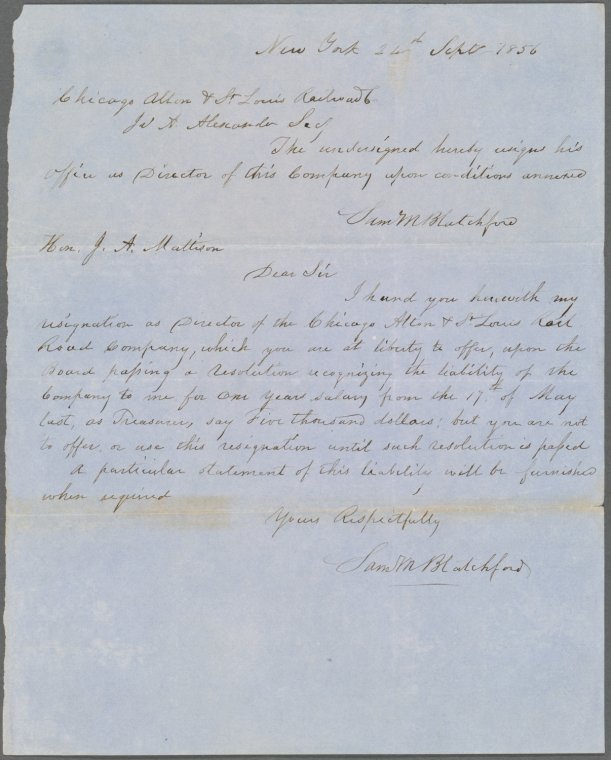 New York 24th Sept 1856
Chicago Alton & St Louis Railroad Co
Jas A Alexander Secy
The undersigned hereby resigns his
Office as Director of this Company upon conditions annexed
Saml M Blatchford
Hon. J. A. Matteson
Dear Sir
I hand you herewith my
resignation as Director of the Chicago Alton & St Louis Rail
Road Company, which you are at liberty to offer, upon the
Board passing a resolution recognizing the liability of the
Company to me for one years salary from the 17th of May
last, as Treasurer, say Five thousand dollars; but you are not
to offer, or use this resignation until such resolution is passed
A particular statement of this liability will be furnished
when required
Yours Respectfully
Saml M Blatchford